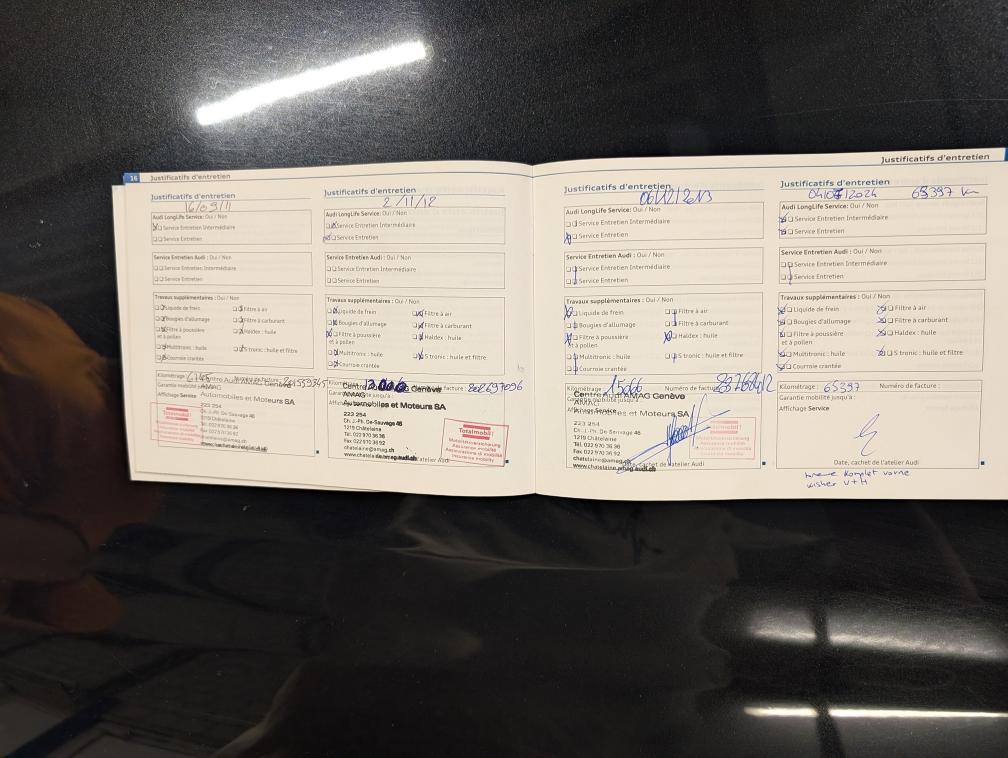 16 Justificatifs d'entretien
Justificatifs d'entretien
16/09/11
Audi LongLife Service: Oui / Non
Service Entretien Intermédiaire
Service Entretien
Service Entretien Audi : Oui / Non
Service Entretien Intermédiaire
Service Entretien
Travaux supplémentaires : Oui / Non
Liquide de frein
Filtre à air
Bougies d'allumage
Filtre à carburant
Filtre à poussière
et à pollen
Haldex : huile
Multitronic : huile
S tronic : huile et filtre
Courroie crantée
Kilométrage :
Garantie mobilité
AMAG
Affichage Service
Automobiles et Moteurs SA
223 254
Ch. J.-Ph. De-Sauvage 46
1219 Châtelaine
Tél. 022 970 36 36
Fax 022 970 36 92
Totalmobil!
Justificatifs d'entretien
2/11/12
Audi LongLife Service: Oui / Non
Service Entretien Intermédiaire
Service Entretien
Service Entretien Audi : Oui / Non
Service Entretien Intermédiaire
Service Entretien
Travaux supplémentaires : Oui / Non
Liquide de frein
Filtre à air
Bougies d'allumage
Filtre à carburant
Filtre à poussière
et à pollen
Haldex : huile
Multitronic : huile
S tronic : huile et filtre
Courroie crantée
Centre Audi AMAG Genève
de facture : 282697096
AMAG
Automobiles et Moteurs SA
223 254
Ch. J.-Ph. De-Sauvage 46
1219 Châtelaine
Tél. 022 970 36 36
Fax 022 970 36 92
chatelaine@amag.ch
www.chatelaine.amag.audi.ch
Totalmobil!
Mobilitätsversicherung
Assurance mobilité
Assicurazione di mobilità
Insurance mobility
Justificatifs d'entretien
Justificatifs d'entretien
06/12/2013
Audi LongLife Service: Oui / Non
Service Entretien Intermédiaire
Service Entretien
Service Entretien Audi : Oui / Non
Service Entretien Intermédiaire
Service Entretien
Travaux supplémentaires : Oui / Non
Liquide de frein
Filtre à air
Bougies d'allumage
Filtre à carburant
Filtre à poussière
et à pollen
Haldex : huile
Multitronic : huile
S tronic : huile et filtre
Courroie crantée
Kilométrage :
Numéro de facture :
Centre Audi AMAG Genève
AMAG
Automobiles et Moteurs SA
223 254
Ch. J.-Ph. De-Sauvage 46
1219 Châtelaine
Tél. 022 970 36 36
Fax 022 970 36 92
chatelaine@amag.ch
www.chatelaine.amag.audi.ch
Date, cachet de l'atelier Audi
Totalmobil!
Mobilitätsversicherung
Assurance mobilité
Assicurazione di mobilità
Insurance mobility
Justificatifs d'entretien
2024 65397 km
Audi LongLife Service: Oui / Non
Service Entretien Intermédiaire
Service Entretien
Service Entretien Audi : Oui / Non
Service Entretien Intermédiaire
Service Entretien
Travaux supplémentaires : Oui / Non
Liquide de frein
Filtre à air
Bougies d'allumage
Filtre à carburant
Filtre à poussière
et à pollen
Haldex : huile
Multitronic : huile
S tronic : huile et filtre
Courroie crantée
Kilométrage : 65397
Numéro de facture :
Garantie mobilité jusqu'à :
Affichage Service
Date, cachet de l'atelier Audi
Komplet vorne
wisher V+H